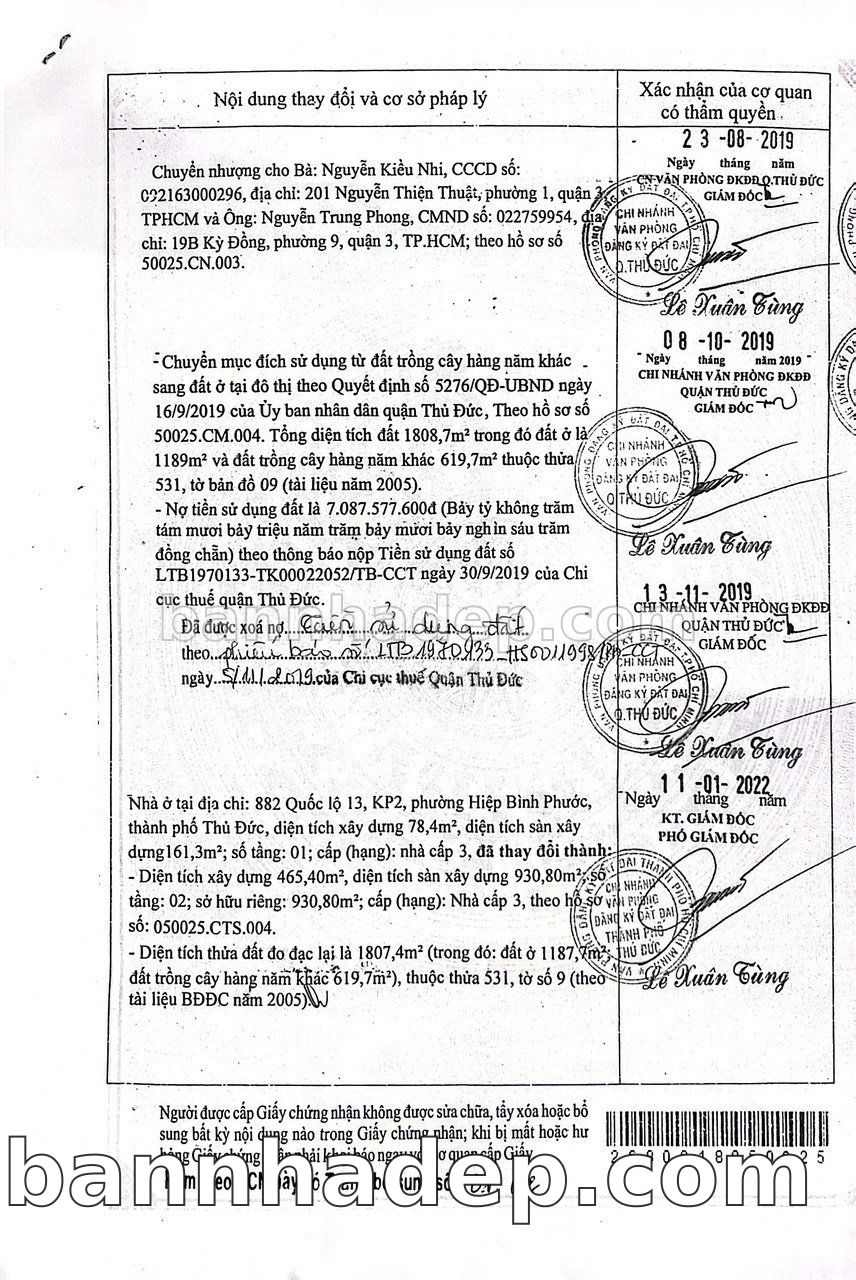 Nội dung thay đổi và cơ sở pháp lý
Xác nhận của cơ quan
có thẩm quyền
Chuyển nhượng cho Bà: Nguyễn Kiều Nhi, CCCD số:
092163000296, địa chỉ: 201 Nguyễn Thiện Thuật, phường 1, quận 3,
TPHCM và Ông: Nguyễn Trung Phong, CMND số: 022759954, địa
chỉ: 19B Kỳ Đồng, phường 9, quận 3, TP.HCM; theo hồ sơ số
50025.CN.003.
23-08-2019
Ngày tháng năm
CN VĂN PHÒNG ĐKĐĐ Q.THỦ ĐỨC
GIÁM ĐỐC
CHI NHÁNH
VĂN PHÒNG
ĐĂNG KÝ ĐẤT ĐAI
Q.THỦ ĐỨC
Lê Xuân Tùng
- Chuyển mục đích sử dụng từ đất trồng cây hàng năm khác
sang đất ở tại đô thị theo Quyết định số 5276/QĐ-UBND ngày
16/9/2019 của Ủy ban nhân dân quận Thủ Đức, Theo hồ sơ số
50025.CM.004. Tổng diện tích đất 1808,7m² trong đó đất ở là
1189m² và đất trồng cây hàng năm khác 619,7m² thuộc thửa
531, tờ bản đồ 09 (tài liệu năm 2005).
- Nợ tiền sử dụng đất là 7.087.577.600đ (Bảy tỷ không trăm
tám mươi bảy triệu năm trăm bảy mươi bảy nghìn sáu trăm
đồng chẵn) theo thông báo nộp Tiền sử dụng đất số
LTB1970133-TK00022052/TB-CCT ngày 30/9/2019 của Chi
cục thuế quận Thủ Đức.
08-10-2019
Ngày tháng năm 2019
CHI NHÁNH VĂN PHÒNG ĐKĐĐ
QUẬN THỦ ĐỨC
GIÁM ĐỐC
CHI NHÁNH
VĂN PHÒNG
ĐĂNG KÝ ĐẤT ĐAI
Q.THỦ ĐỨC
Lê Xuân Tùng
Đã được xoá nợ Tiền sử dụng đất
theo phiếu báo số LTB1970133
ngày 5/11/2019 của Chi cục thuế Quận Thủ Đức
13-11-2019
CHI NHÁNH VĂN PHÒNG ĐKĐĐ
QUẬN THỦ ĐỨC
GIÁM ĐỐC
CHI NHÁNH
VĂN PHÒNG
ĐĂNG KÝ ĐẤT ĐAI
Q.THỦ ĐỨC
Lê Xuân Tùng
Nhà ở tại địa chỉ: 882 Quốc lộ 13, KP2, phường Hiệp Bình Phước,
thành phố Thủ Đức, diện tích xây dựng 78,4m², diện tích sàn xây
dựng161,3m²; số tầng: 01; cấp (hạng): nhà cấp 3, đã thay đổi thành:
- Diện tích xây dựng 465,40m², diện tích sàn xây dựng 930,80m²; số
tầng: 02; sở hữu riêng: 930,80m²; cấp (hạng): Nhà cấp 3, theo hồ sơ
số: 050025.CTS.004.
- Diện tích thửa đất đo đạc lại là 1807,4m² (trong đó: đất ở 1187,7m²;
đất trồng cây hàng năm khác 619,7m²), thuộc thửa 531, tờ số 9 (theo
tài liệu BĐĐC năm 2005).
11-01-2022
Ngày tháng năm
KT. GIÁM ĐỐC
PHÓ GIÁM ĐỐC
CHI NHÁNH
VĂN PHÒNG
ĐĂNG KÝ ĐẤT ĐAI
THÀNH PHỐ
THỦ ĐỨC
Lê Xuân Tùng
bannhadep.com
Người được cấp Giấy chứng nhận không được sửa chữa, tẩy xóa hoặc bổ
sung bất kỳ nội dung nào trong Giấy chứng nhận; khi bị mất hoặc hư
hỏng Giấy chứng nhận phải khai báo ngay với cơ quan cấp Giấy.
bannhadep.com